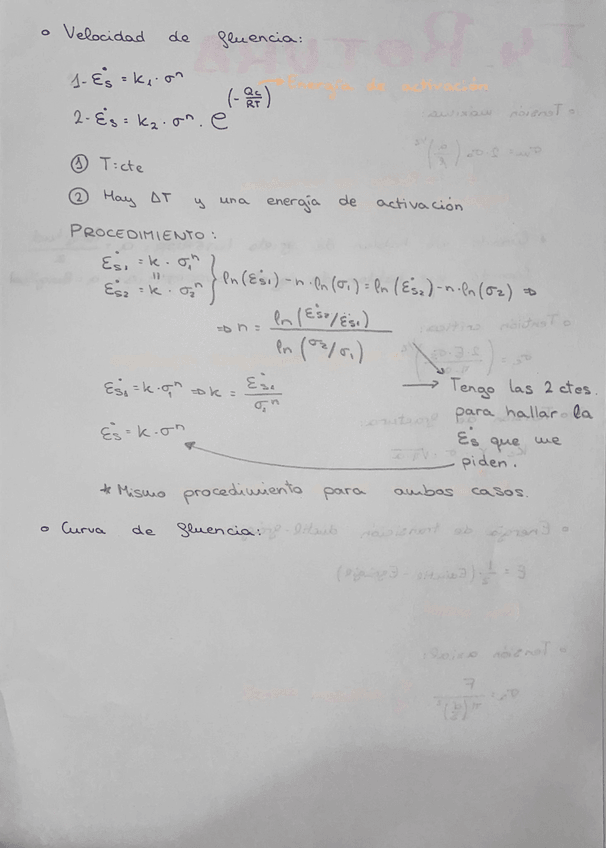 • Velocidad de fluencia:
1- ε̇s = k₁ · σⁿ
→ Energía de activación
2- ε̇s = k₂ · σⁿ · e^(-Qc/RT)
① T:cte
② Hay ΔT y una energía de activación
PROCEDIMIENTO:
ε̇s₁ = k · σ₁ⁿ
ε̇s₂ = k · σ₂ⁿ } ln(ε̇s₁) - n · ln(σ₁) = ln(ε̇s₂) - n · ln(σ₂) ⇒
⇒ n = ln(ε̇s₂/ε̇s₁) / ln(σ₂/σ₁)
ε̇s₁ = k · σ₁ⁿ ⇒ k = ε̇s₁ / σ₁ⁿ
→ Tengo las 2 ctes.
para hallar la
ε̇s que me
piden.
ε̇s = k · σⁿ
* Mismo procedimiento para ambos casos.
• Curva de fluencia: